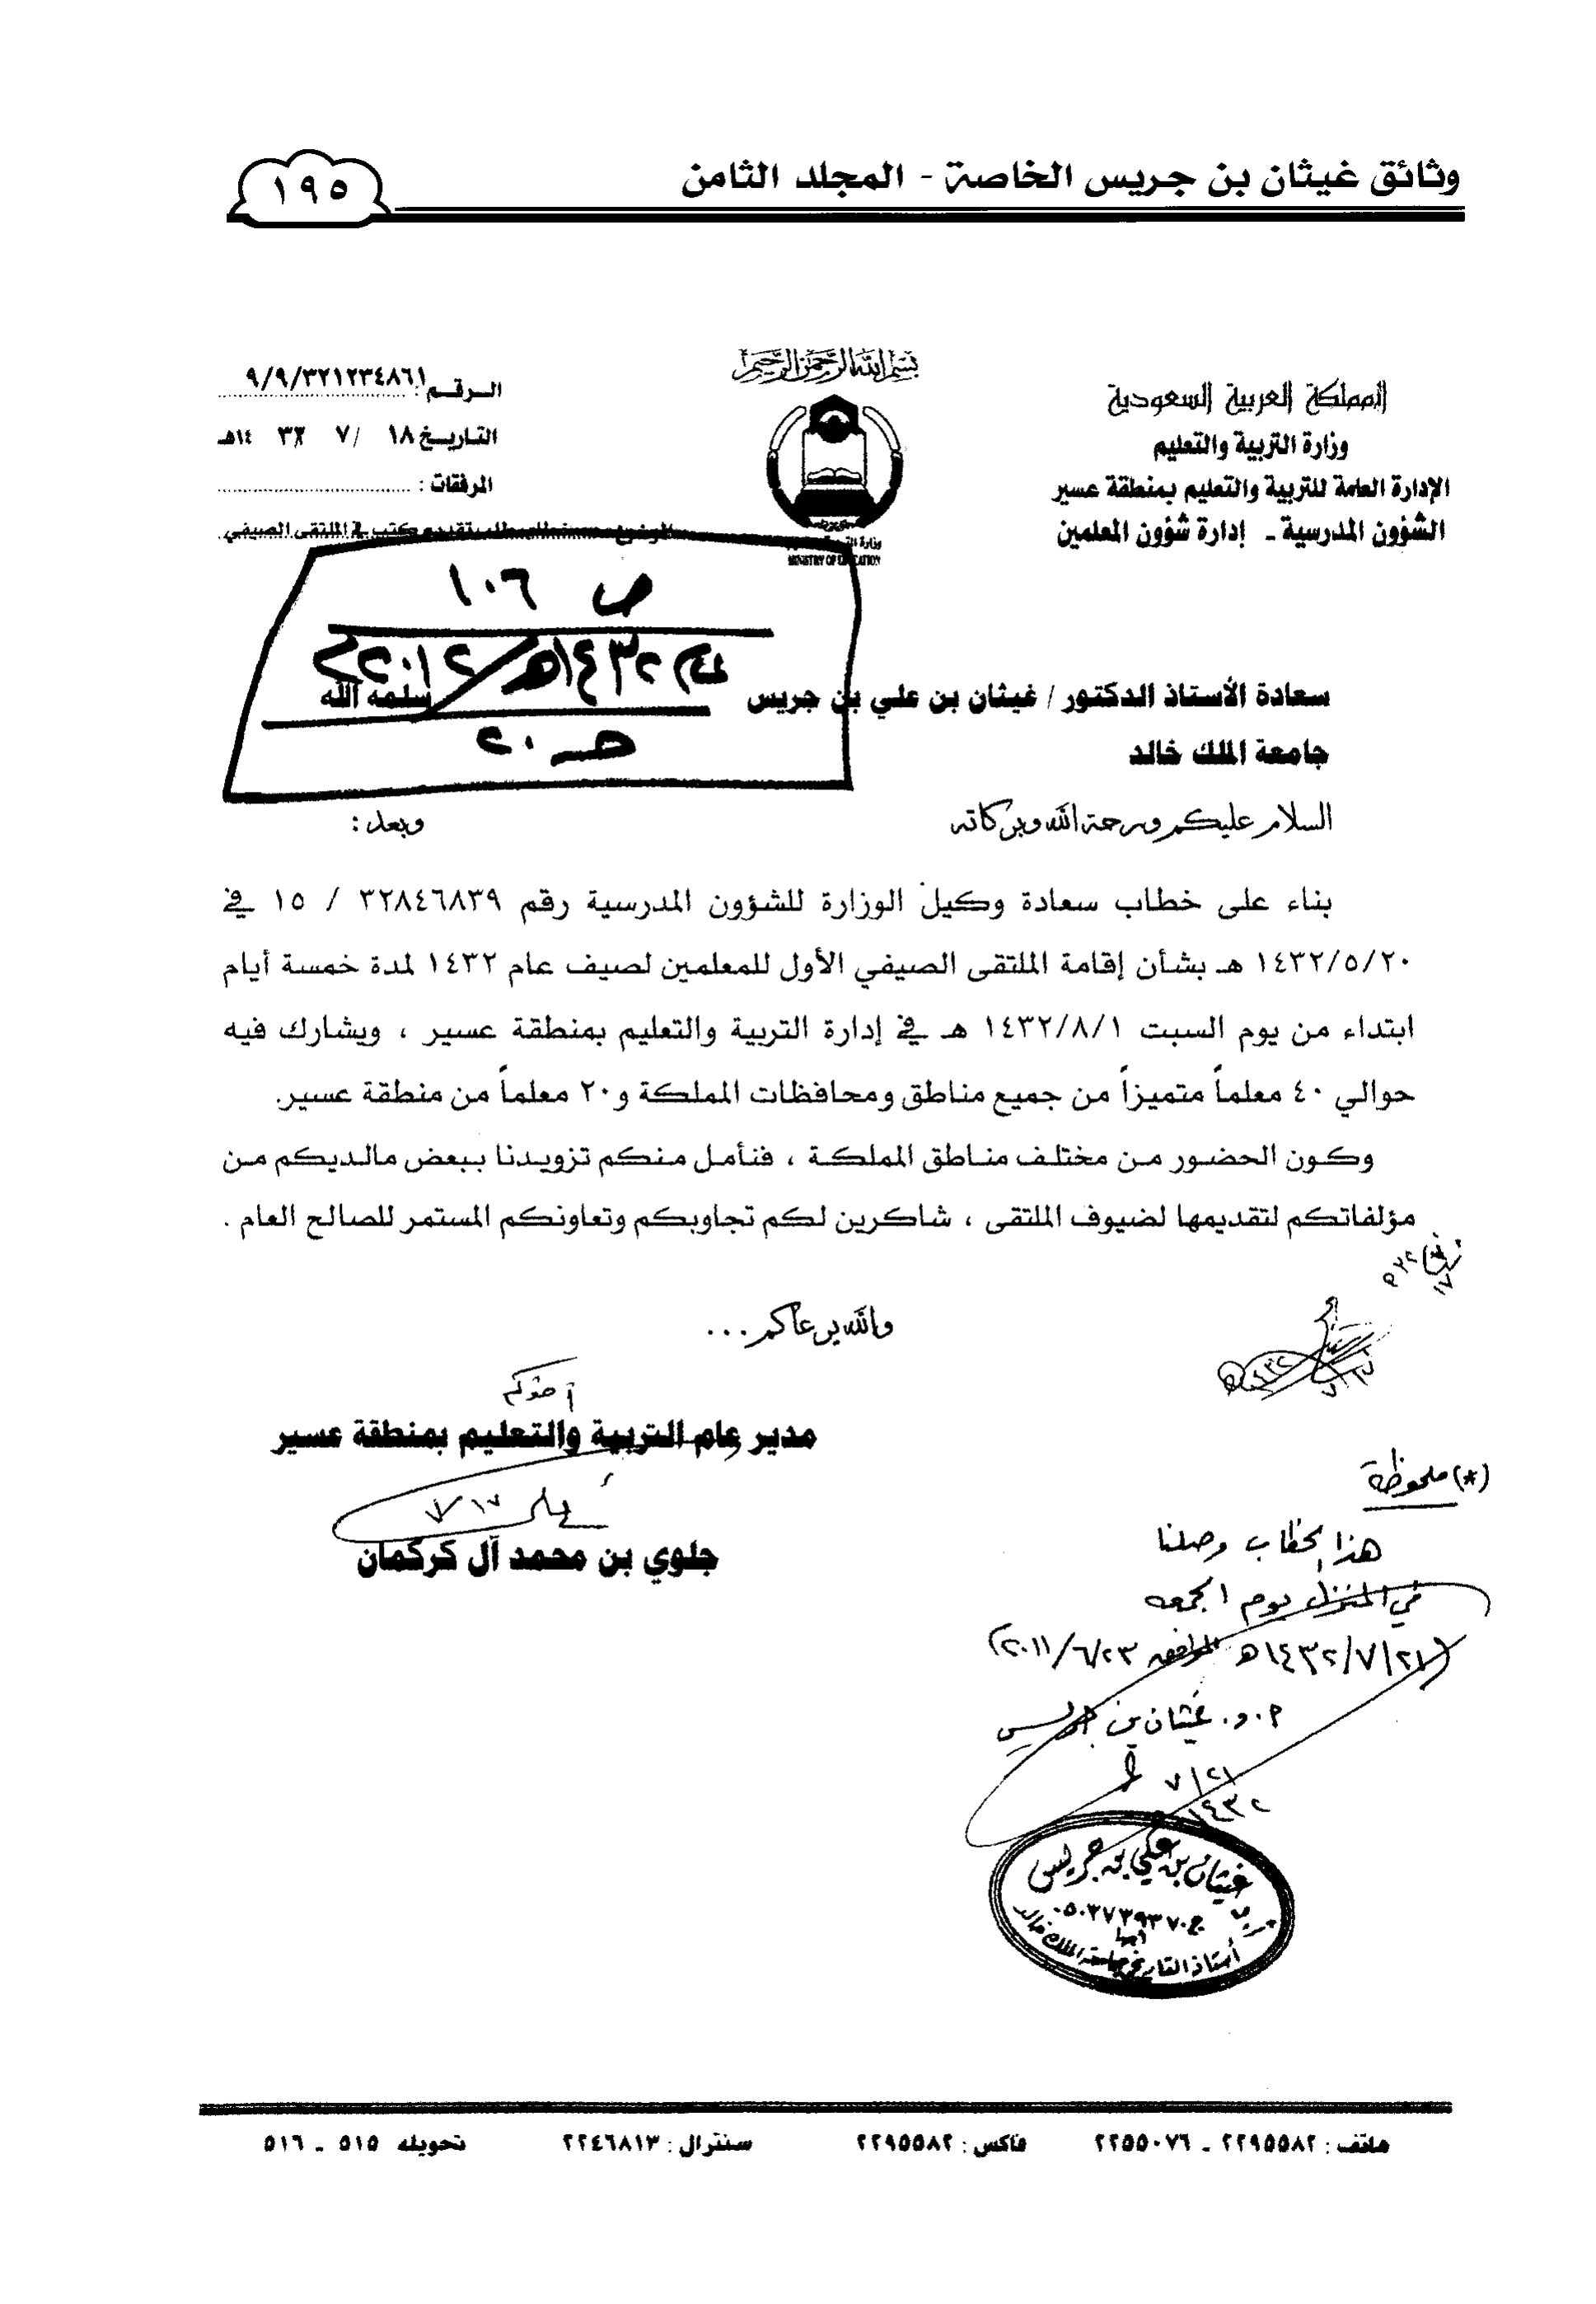 وثائق غيثان بن جريس الخاصة - المجلد الثامن
١٩٥
بسم الله الرحمن الرحيم
المملكة العربية السعودية
وزارة التربية والتعليم
الإدارة العامة للتربية والتعليم بمنطقة عسير
الشؤون المدرسية - إدارة شؤون المعلمين
MINISTRY OF EDUCATION
الرقم : ٩/٩/٣٢١٢٣٤٨٦١
التاريخ ١٨ / ٧ ١٤هـ
المرفقات :
الموضوع طلب تقديم كتب في الملتقى الصيفي
ص ١٠٦
١٤٣٢هـ/٢٠١٢م
حـ ٢٠
سعادة الأستاذ الدكتور / غيثان بن علي بن جريس سلمه الله
جامعة الملك خالد
السلام عليكم ورحمة الله وبركاته وبعد :
بناء على خطاب سعادة وكيل الوزارة للشؤون المدرسية رقم ٣٢٨٤٦٨٣٩ / ١٥ في
١٤٣٢/٥/٢٠ هـ بشأن إقامة الملتقى الصيفي الأول للمعلمين لصيف عام ١٤٣٢ لمدة خمسة أيام
ابتداء من يوم السبت ١٤٣٢/٨/١ هـ في إدارة التربية والتعليم بمنطقة عسير ، ويشارك فيه
حوالي ٤٠ معلماً متميزاً من جميع مناطق ومحافظات المملكة و٢٠ معلماً من منطقة عسير.
وكون الحضور من مختلف مناطق المملكة ، فنأمل منكم تزويدنا ببعض مالديكم من
مؤلفاتكم لتقديمها لضيوف الملتقى ، شاكرين لكم تجاوبكم وتعاونكم المستمر للصالح العام .
والله يرعاكم ...
أخوكم
مدير عام التربية والتعليم بمنطقة عسير
جلوي بن محمد آل كركمان
(*) ملحوظة
هذا الخطاب وصلنا
في المنزل يوم الجمعه
(١٤٣٢/٧/٢١هـ الموافق ٢٠١١/٦/٢٣)
أ.د. غيثان بن جريس
٧/٢١
١٤٣٢
غيثان بن علي بن جريس
ج ٠٥٠٣٧٣٩٣٧٠
أبها
أستاذ التاريخ بجامعة الملك خالد
هاتف : ٢٢٩٥٥٨٢ - ٢٢٥٥٠٧٦ فاكس : ٢٢٩٥٥٨٢ سنترال : ٢٢٤٦٨١٣ تحويله ٥١٥ - ٥١٦